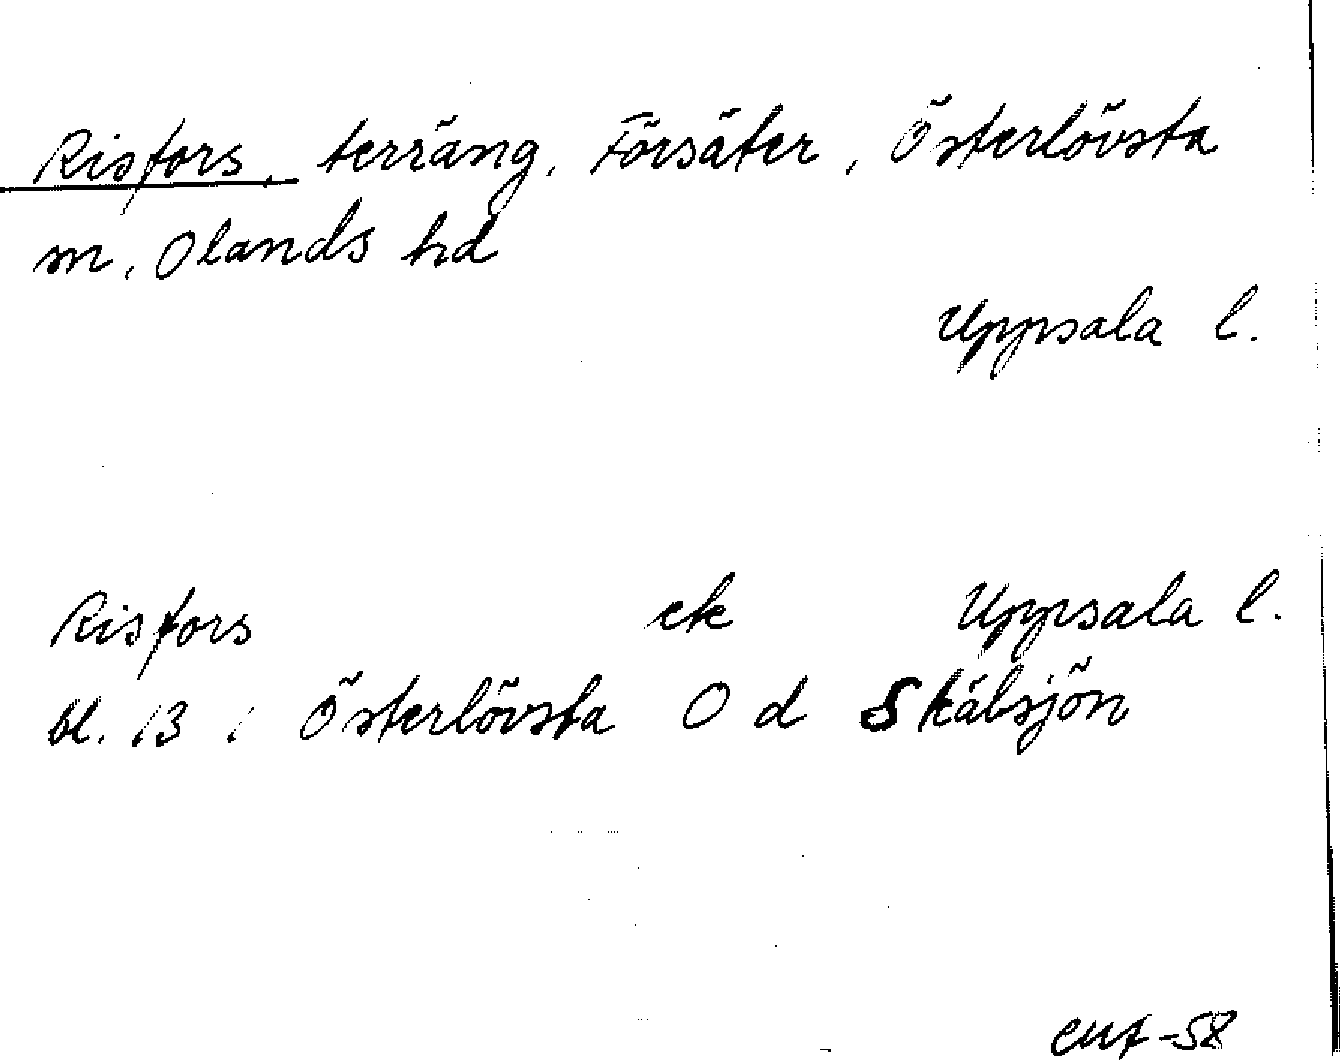 Risfors, terräng, Försäter, Österlövsta
m, Olands hd
Uppsala l.
Risfors ek Uppsala l.
bl. 13 i Österlövsta O d Skälsjön